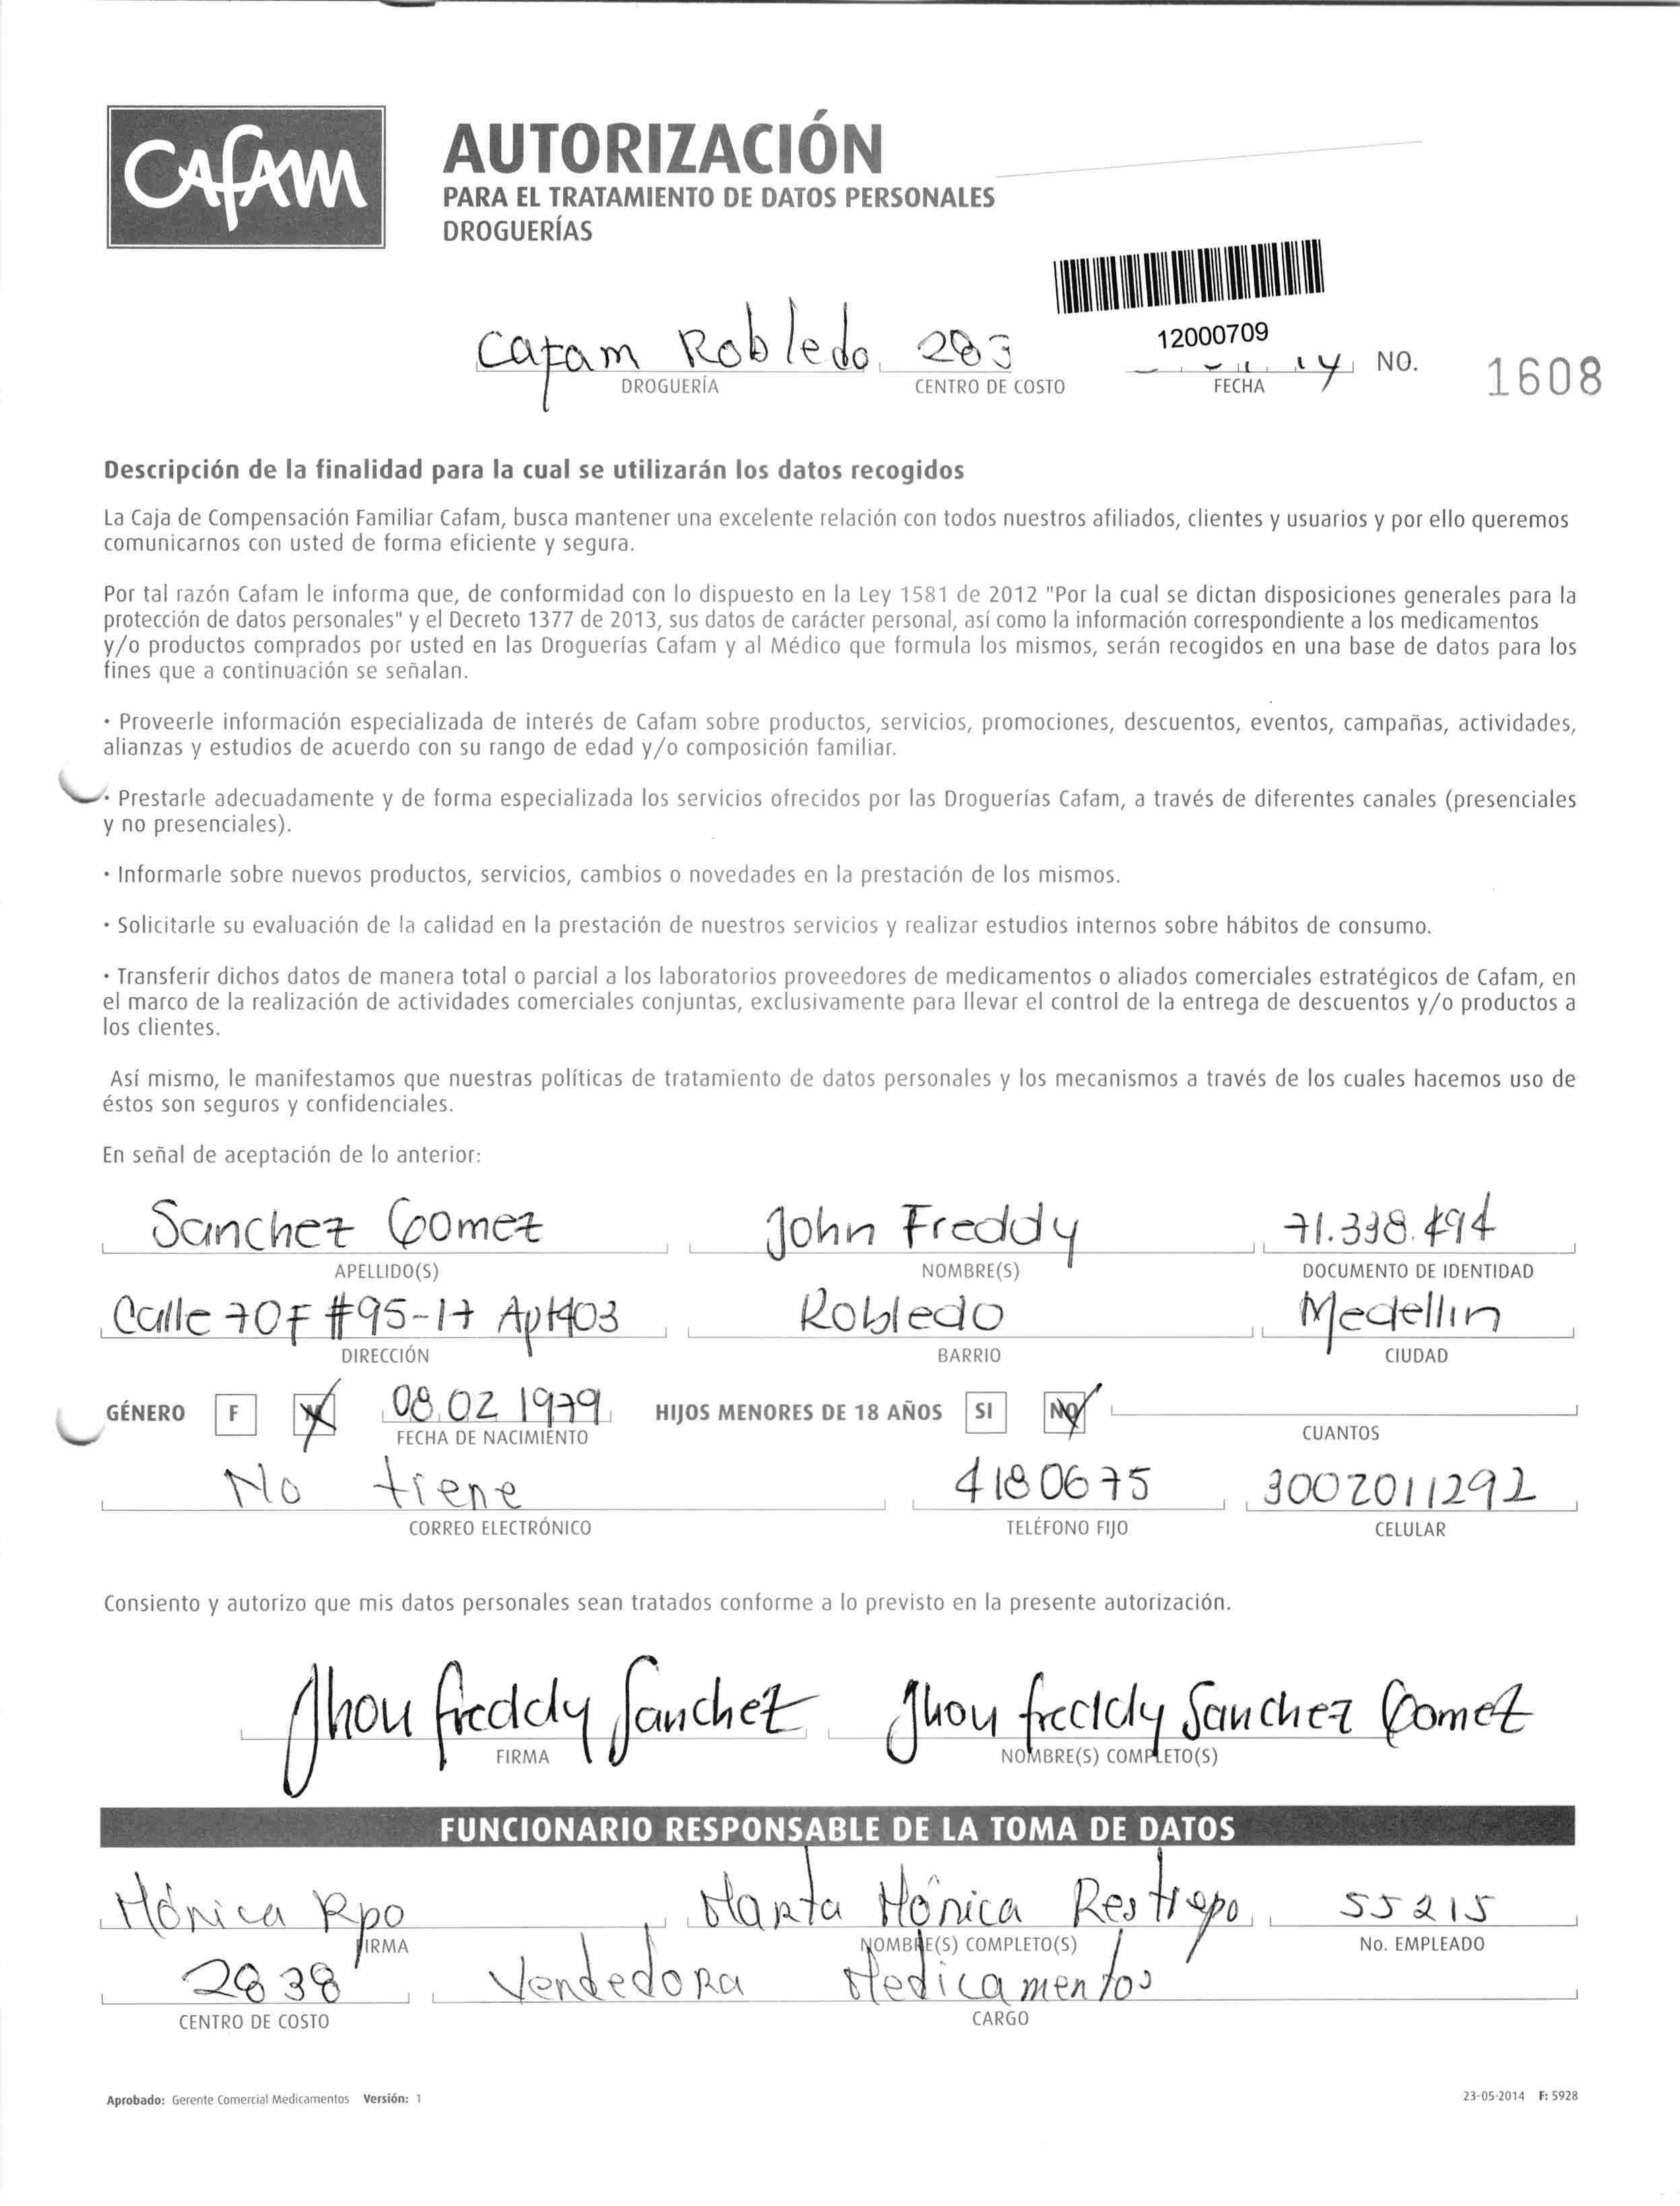 CAFAM
AUTORIZACIÓN
PARA EL TRATAMIENTO DE DATOS PERSONALES
DROGUERÍAS
12000709
Cafam Robledo 283 14 NO. 1608
DROGUERÍA CENTRO DE COSTO FECHA
Descripción de la finalidad para la cual se utilizarán los datos recogidos
La Caja de Compensación Familiar Cafam, busca mantener una excelente relación con todos nuestros afiliados, clientes y usuarios y por ello queremos
comunicarnos con usted de forma eficiente y segura.
Por tal razón Cafam le informa que, de conformidad con lo dispuesto en la Ley 1581 de 2012 "Por la cual se dictan disposiciones generales para la
protección de datos personales" y el Decreto 1377 de 2013, sus datos de carácter personal, así como la información correspondiente a los medicamentos
y/o productos comprados por usted en las Droguerías Cafam y al Médico que formula los mismos, serán recogidos en una base de datos para los
fines que a continuación se señalan.
· Proveerle información especializada de interés de Cafam sobre productos, servicios, promociones, descuentos, eventos, campañas, actividades,
alianzas y estudios de acuerdo con su rango de edad y/o composición familiar.
· Prestarle adecuadamente y de forma especializada los servicios ofrecidos por las Droguerías Cafam, a través de diferentes canales (presenciales
y no presenciales).
· Informarle sobre nuevos productos, servicios, cambios o novedades en la prestación de los mismos.
· Solicitarle su evaluación de la calidad en la prestación de nuestros servicios y realizar estudios internos sobre hábitos de consumo.
· Transferir dichos datos de manera total o parcial a los laboratorios proveedores de medicamentos o aliados comerciales estratégicos de Cafam, en
el marco de la realización de actividades comerciales conjuntas, exclusivamente para llevar el control de la entrega de descuentos y/o productos a
los clientes.
Así mismo, le manifestamos que nuestras políticas de tratamiento de datos personales y los mecanismos a través de los cuales hacemos uso de
éstos son seguros y confidenciales.
En señal de aceptación de lo anterior:
Sanchez Gomez John Freddy
APELLIDO(S) NOMBRE(S) DOCUMENTO DE IDENTIDAD
Calle 70F #95-17 Apt403 Robledo Medellin
DIRECCIÓN BARRIO CIUDAD
GÉNERO F M 08.02 1979 HIJOS MENORES DE 18 AÑOS SI NO
FECHA DE NACIMIENTO CUANTOS
No tiene 4180675 3002011292
CORREO ELECTRÓNICO TELÉFONO FIJO CELULAR
Consiento y autorizo que mis datos personales sean tratados conforme a lo previsto en la presente autorización.
Jhon freddy Sanchez Jhon freddy Sanchez Gomez
FIRMA NOMBRE(S) COMPLETO(S)
FUNCIONARIO RESPONSABLE DE LA TOMA DE DATOS
Mónica Rpo Marta Mónica Restrepo 55215
FIRMA NOMBRE(S) COMPLETO(S) No. EMPLEADO
2838 Vendedora Medicamentos
CENTRO DE COSTO CARGO
Aprobado: Gerente Comercial Medicamentos Versión: 1 23-05-2014 F: 5928